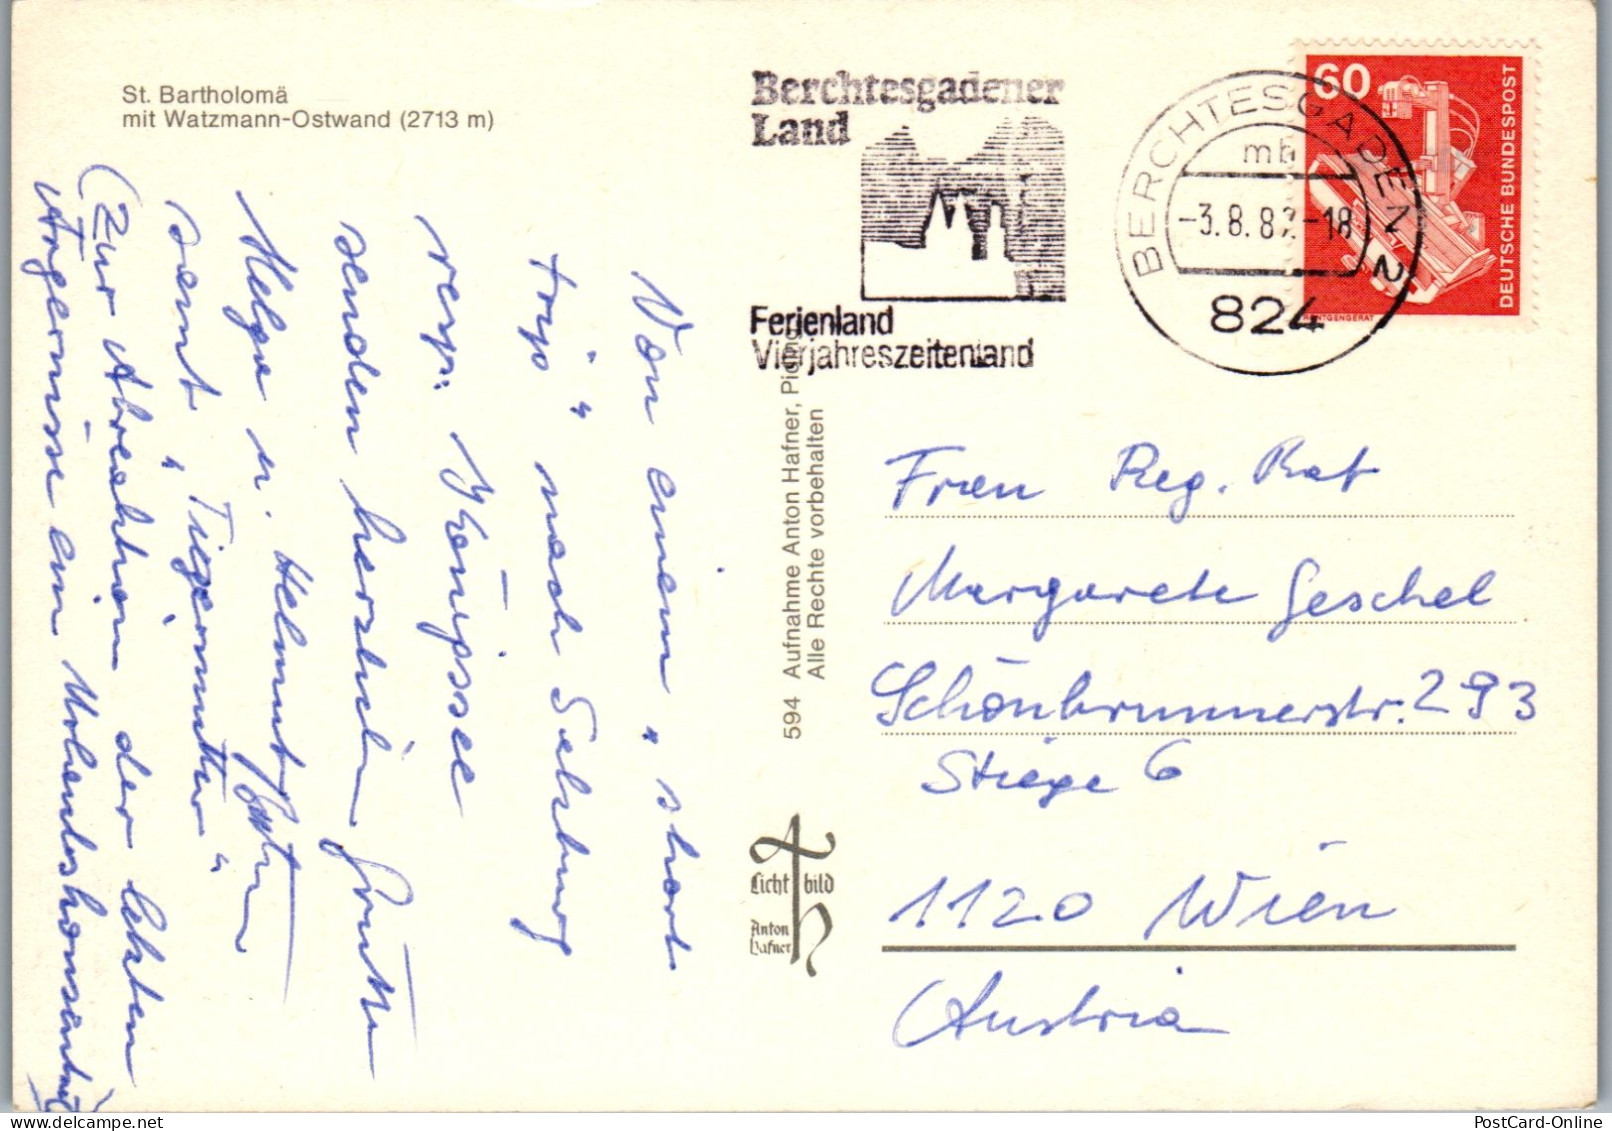 St. Bartholomä
mit Watzmann-Ostwand (2713 m)
Von einem „short
trip" nach Salzburg
resp. Königssee
senden herzliche Grüße
Helga u. Helmut
samt „Tigermutter"
(Zur Abreaktion der letzten
Ärgernisse ein
594 Aufnahme Anton Hafner,
Alle Rechte vorbehalten
Licht bild
Anton
Hafner
Berchtesgadener
Land
Ferienland
Vierjahreszeitenland
BERCHTESGADEN 2
mb
-3.8.82-18
824
60
DEUTSCHE BUNDESPOST
RÖNTGENGERÄT
Frau Reg. Rat
Margarete Geschel
Schönbrunnerstr. 293
Stiege 6
1120 Wien
Austria